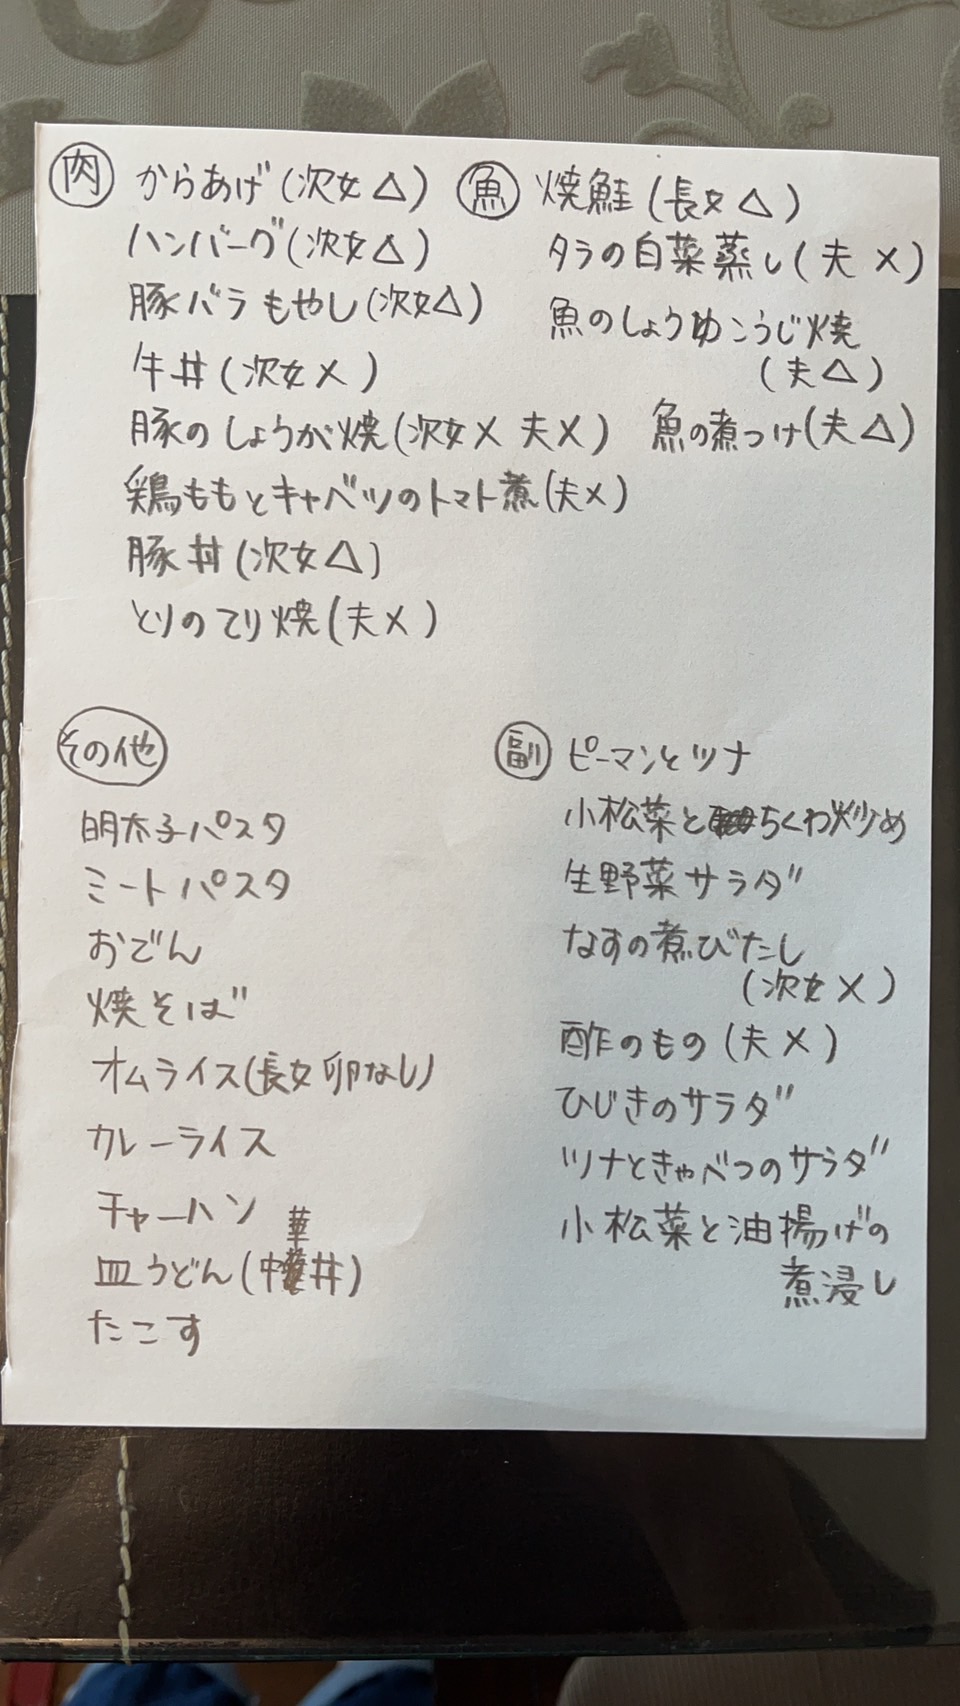 肉 からあげ(次女△)
ハンバーグ(次女△)
豚バラもやし(次女△)
牛丼(次女×)
豚のしょうが焼(次女× 夫×)
鶏ももとキャベツのトマト煮(夫×)
豚丼(次女△)
とりのてり焼(夫×)
魚 焼鮭(長女△)
タラの白菜蒸し(夫×)
魚のしょうゆこうじ焼
(夫△)
魚の煮つけ(夫△)
その他
明太子パスタ
ミートパスタ
おでん
焼そば
オムライス(長女卵なし)
カレーライス
チャーハン
皿うどん(中華丼)
たこす
副 ピーマンとツナ
小松菜とちくわ炒め
生野菜サラダ
なすの煮びたし
(次女×)
酢のもの(夫×)
ひじきのサラダ
ツナときゃべつのサラダ
小松菜と油揚げの
煮浸し